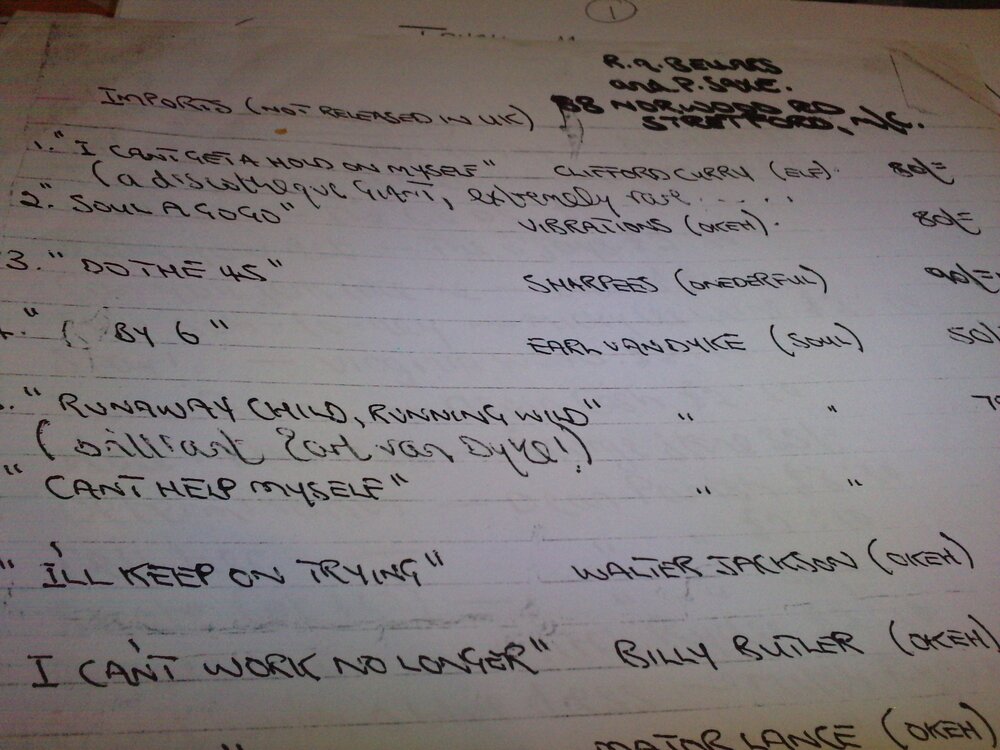 1
R.A. BELLARS
and P. SAXE.
IMPORTS (NOT RELEASED IN UK) 38 NORWOOD RD
STRETFORD, M/C.
1. "I CANT GET A HOLD ON MYSELF" CLIFFORD CURRY (ELF). 80/=
(a discotheque GIANT, extremely rare.....
2. "SOUL A GO GO" VIBRATIONS (OKEH). 80/=
3. "DO THE 45" SHARPEES (ONEDERFUL) 90/=
" BY 6" EARL VAN DYKE (SOUL) 50/
. "RUNAWAY CHILD, RUNNING WILD" " "
(brilliant Earl van Dyke!)
"CAN'T HELP MYSELF" " "
" I'LL KEEP ON TRYING" WALTER JACKSON (OKEH)
I CAN'T WORK NO LONGER" BILLY BUTLER (OKEH)
" MAJOR LANCE (OKEH)